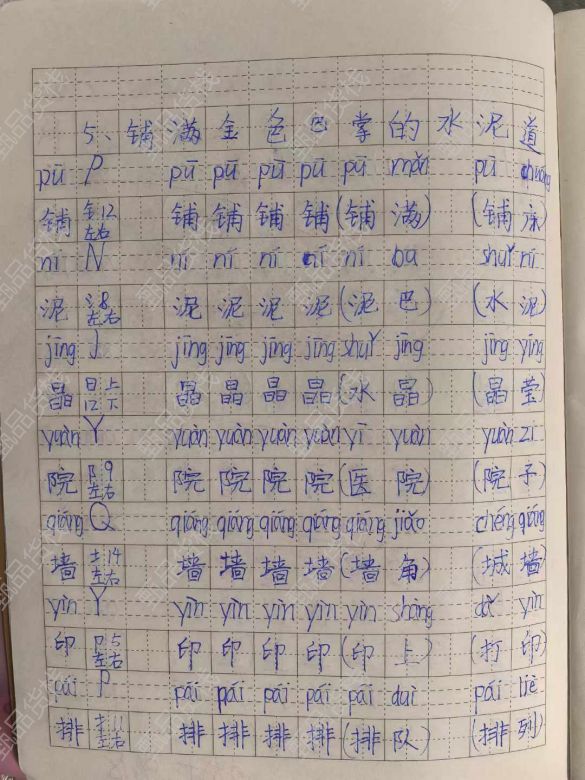 5、铺满金色巴掌的水泥道
pū P pū pū pū pū pū mǎn pū chuáng
铺 钅12 左右 铺 铺 铺 铺 (铺 满) (铺 床)
ní N ní ní ní ní ní ba shuǐ ní
泥 氵8 左右 泥 泥 泥 泥 (泥 巴) (水 泥)
jīng J jīng jīng jīng jīng shuǐ jīng jīng yíng
晶 日12 上下 晶 晶 晶 晶 (水 晶) (晶 莹)
yuàn Y yuàn yuàn yuàn yuàn yī yuàn yuàn zi
院 阝9 左右 院 院 院 院 (医 院) (院 子)
qiáng Q qiáng qiáng qiáng qiáng qiáng jiǎo chéng qiáng
墙 土14 左右 墙 墙 墙 墙 (墙 角) (城 墙)
yìn Y yìn yìn yìn yìn yìn shàng dǎ yìn
印 卩5 左右 印 印 印 印 (印 上) (打 印)
pái P pái pái pái pái pái duì pái liè
排 扌11 左右 排 排 排 排 (排 队) (排 列)